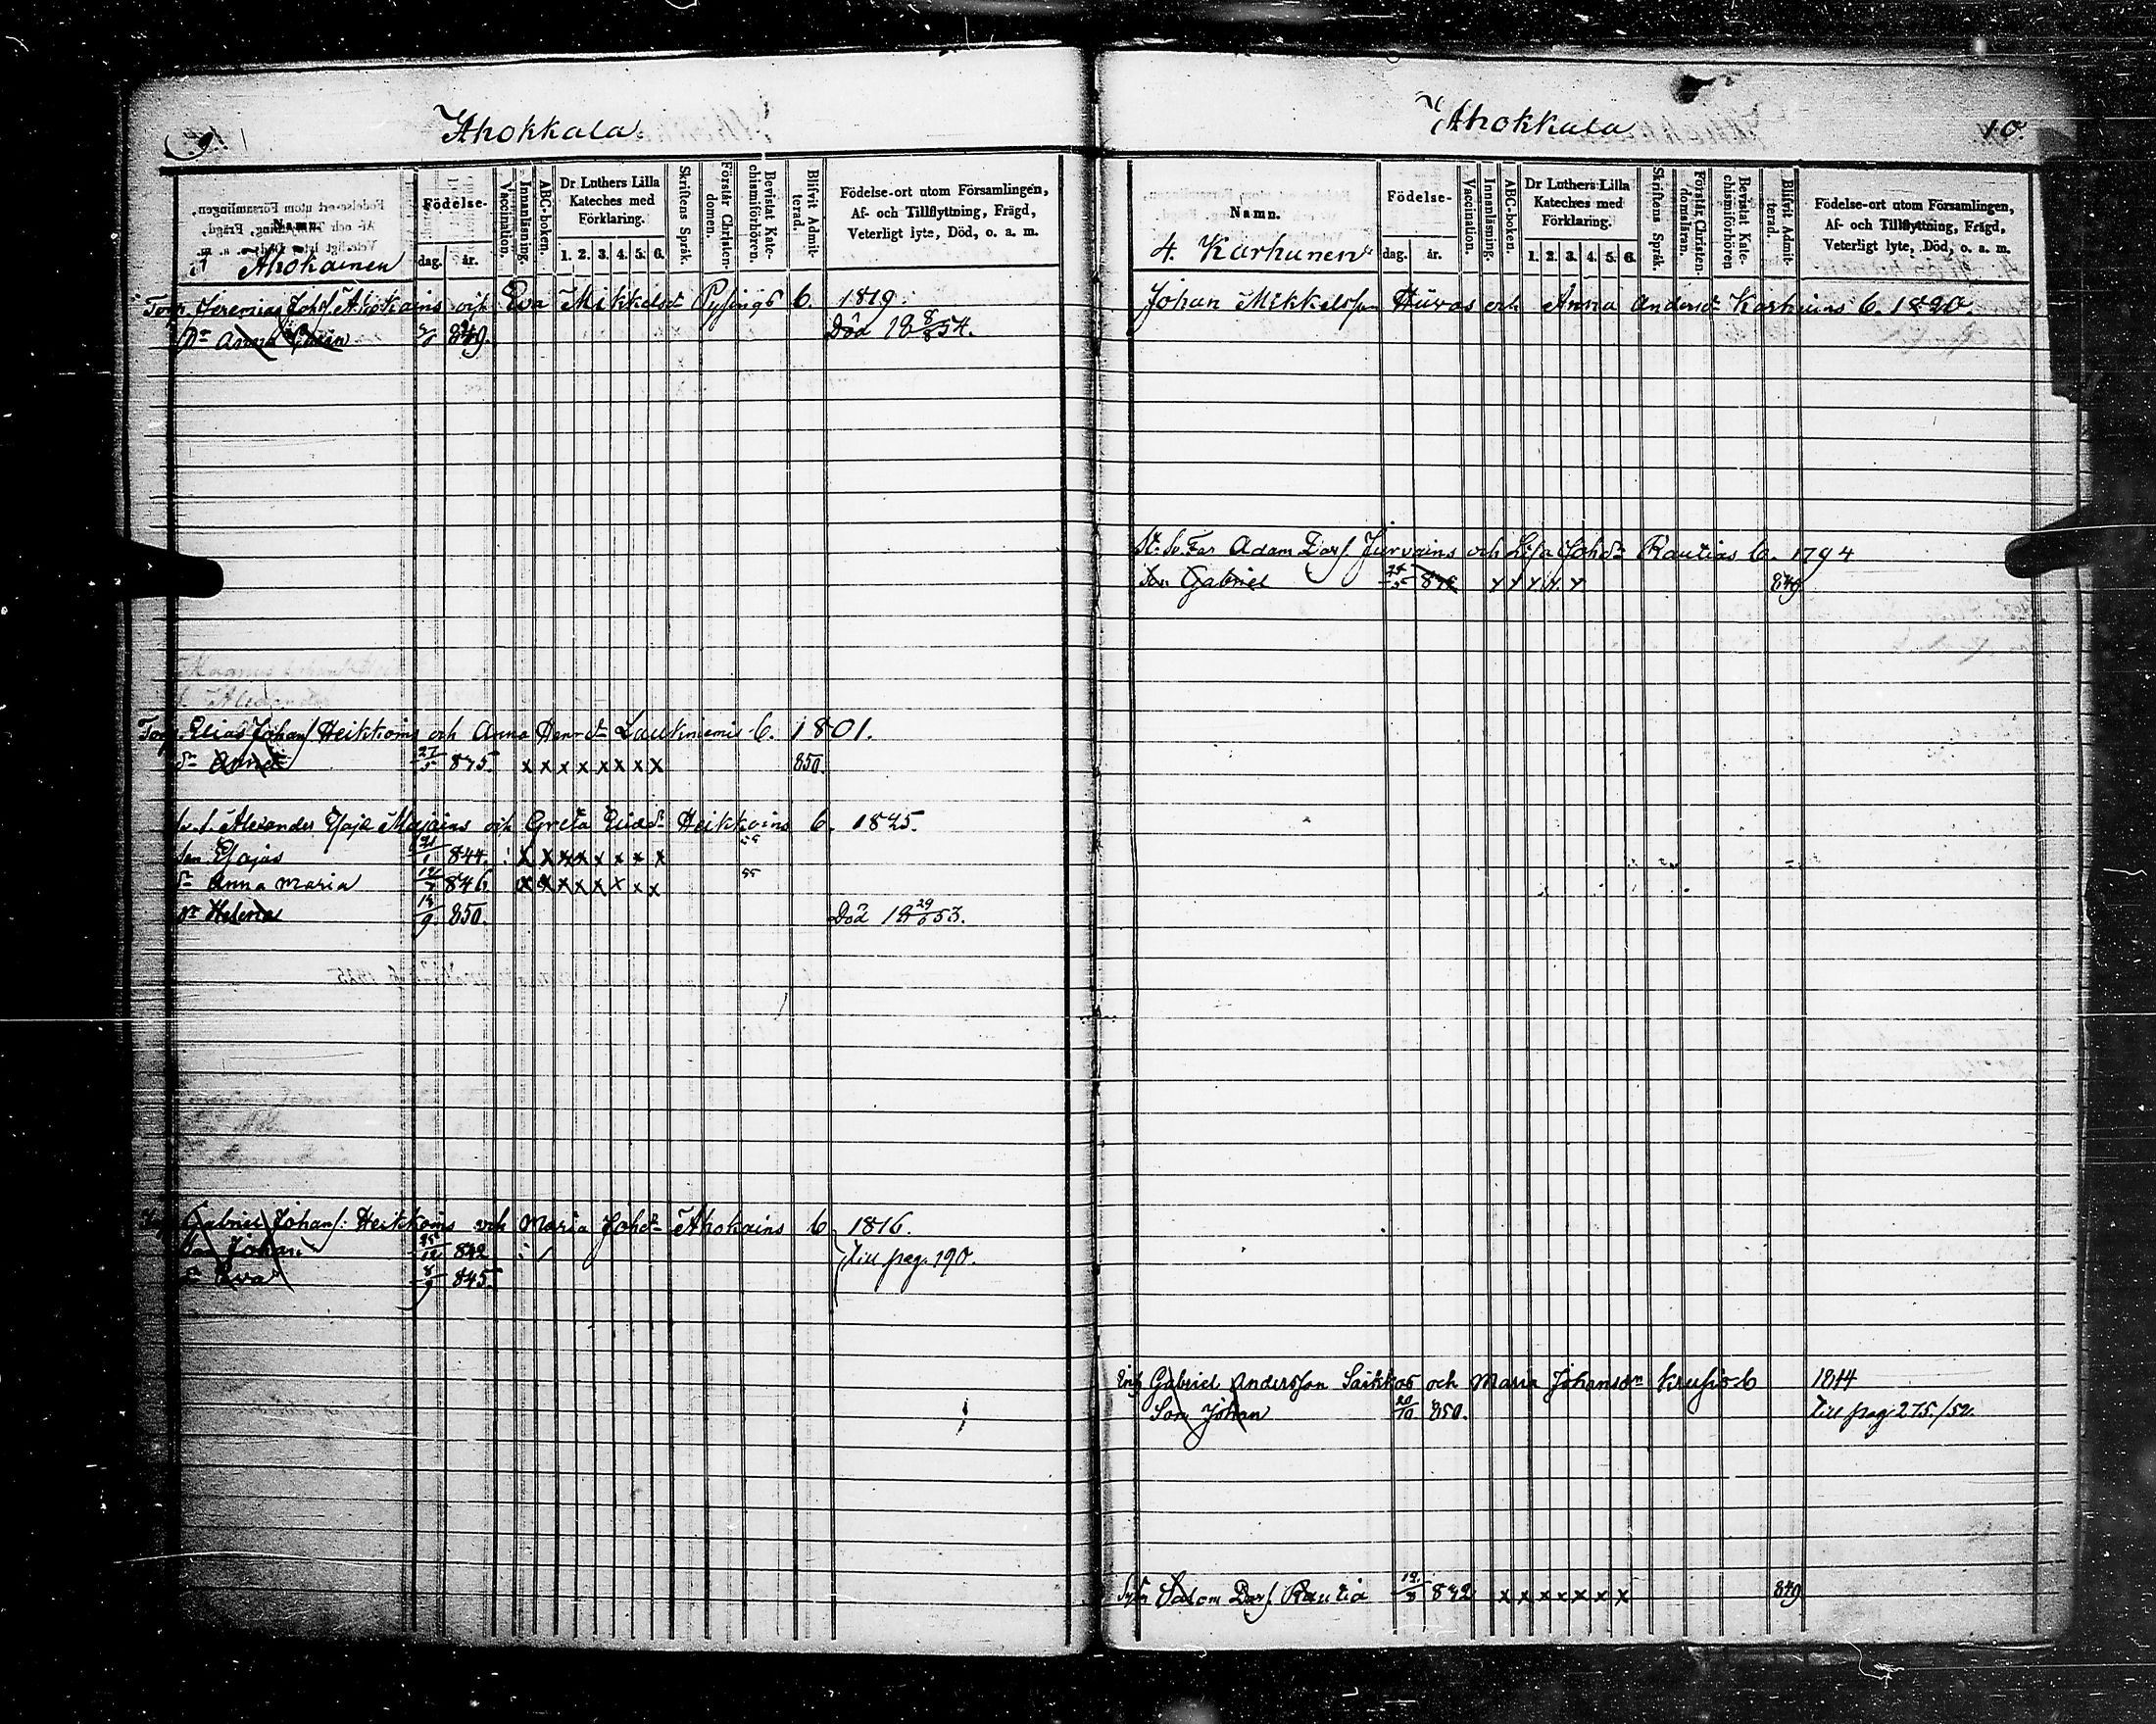 9.
Ahokkala.
Födelse-
dag. år.
Vaccination.
Innanläsning.
ABC-boken.
Dr Luthers Lilla Kateches med Förklaring.
1. 2. 3. 4. 5. 6.
Skriftens Språk.
Förstår Christendomen.
Bevistat Katechismiförhören.
Blifvit Admitterad.
Födelse-ort utom Församlingen,
Af- och Tillflyttning, Frägd,
Veterligt lyte, Död, o. a. m.
Ahokainen
Torp. Jeremias Johs. Ahokains och Eva Mikkelsdr b. 1819.
Dr Anna 849. Död 18 8/8 54.
Magnus
Alexander
Torp. Elias Johans Heikkoins och Anna Henrdr Laukniemis b. 1801.
Dr Anna 27/5 875. x x x x x x x x 850.
Alexander Esajæ och Greta Eliædr Heikkoins b. 1825.
Son Esajas 21/1 844. x x x x x x x x 55
Dr Anna Maria 12/7 846 x x x x x x x x 55
Dr Helena 18/9 850. Död 18 29/6 53.
Gabriel Johans. Heikkoins och Maria Johdr Ahokains b. 1816.
Son Johan 25/12 842
Dr Eva 8/9 845. Till pag. 190.
Ahokkala
10
Namn.
Födelse-
dag. år.
Vaccination.
Innanläsning.
ABC-boken.
Dr Luthers Lilla Kateches med Förklaring.
1. 2. 3. 4. 5. 6.
Skriftens Språk.
Förstår Christendomsläran.
Bevistat Katechismiförhören
Blifvit Admitterad.
Födelse-ort utom Församlingen,
Af- och Tillflyttning, Frägd,
Veterligt lyte, Död, o. a. m.
4. Karhunen
Johan Mikkelsson Huvas och Anna Andersdr Karhuins b. 1820.
Adam Jurvains och Lisa Johdr Rautias b. 1794
Son Gabriel x x x x x 849
Gabriel Andersson Saikkos och Maria Johansdr b 1814
Son Johan 20/10 850. Till pag 275./52.
Adam Dav. Rautia 12/8 832 x x x x x x x 849